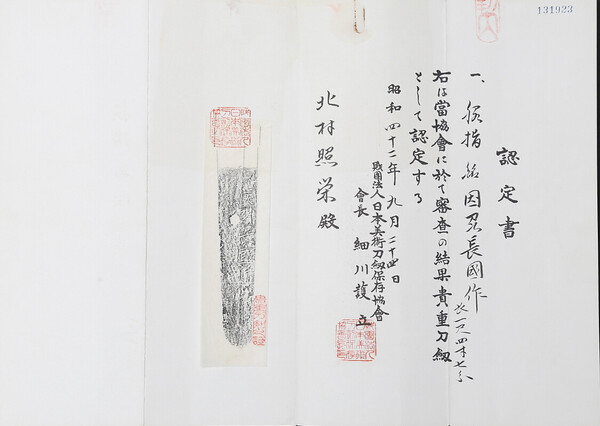 131923
認定書
一、脇指 銘 因州長國作 長一尺四寸七分
右は當協會に於て審査の結果貴重刀劔
として認定する
昭和四十二年九月二十四日
財團法人日本美術刀劔保存協會
會長 細川護立
北村照栄殿